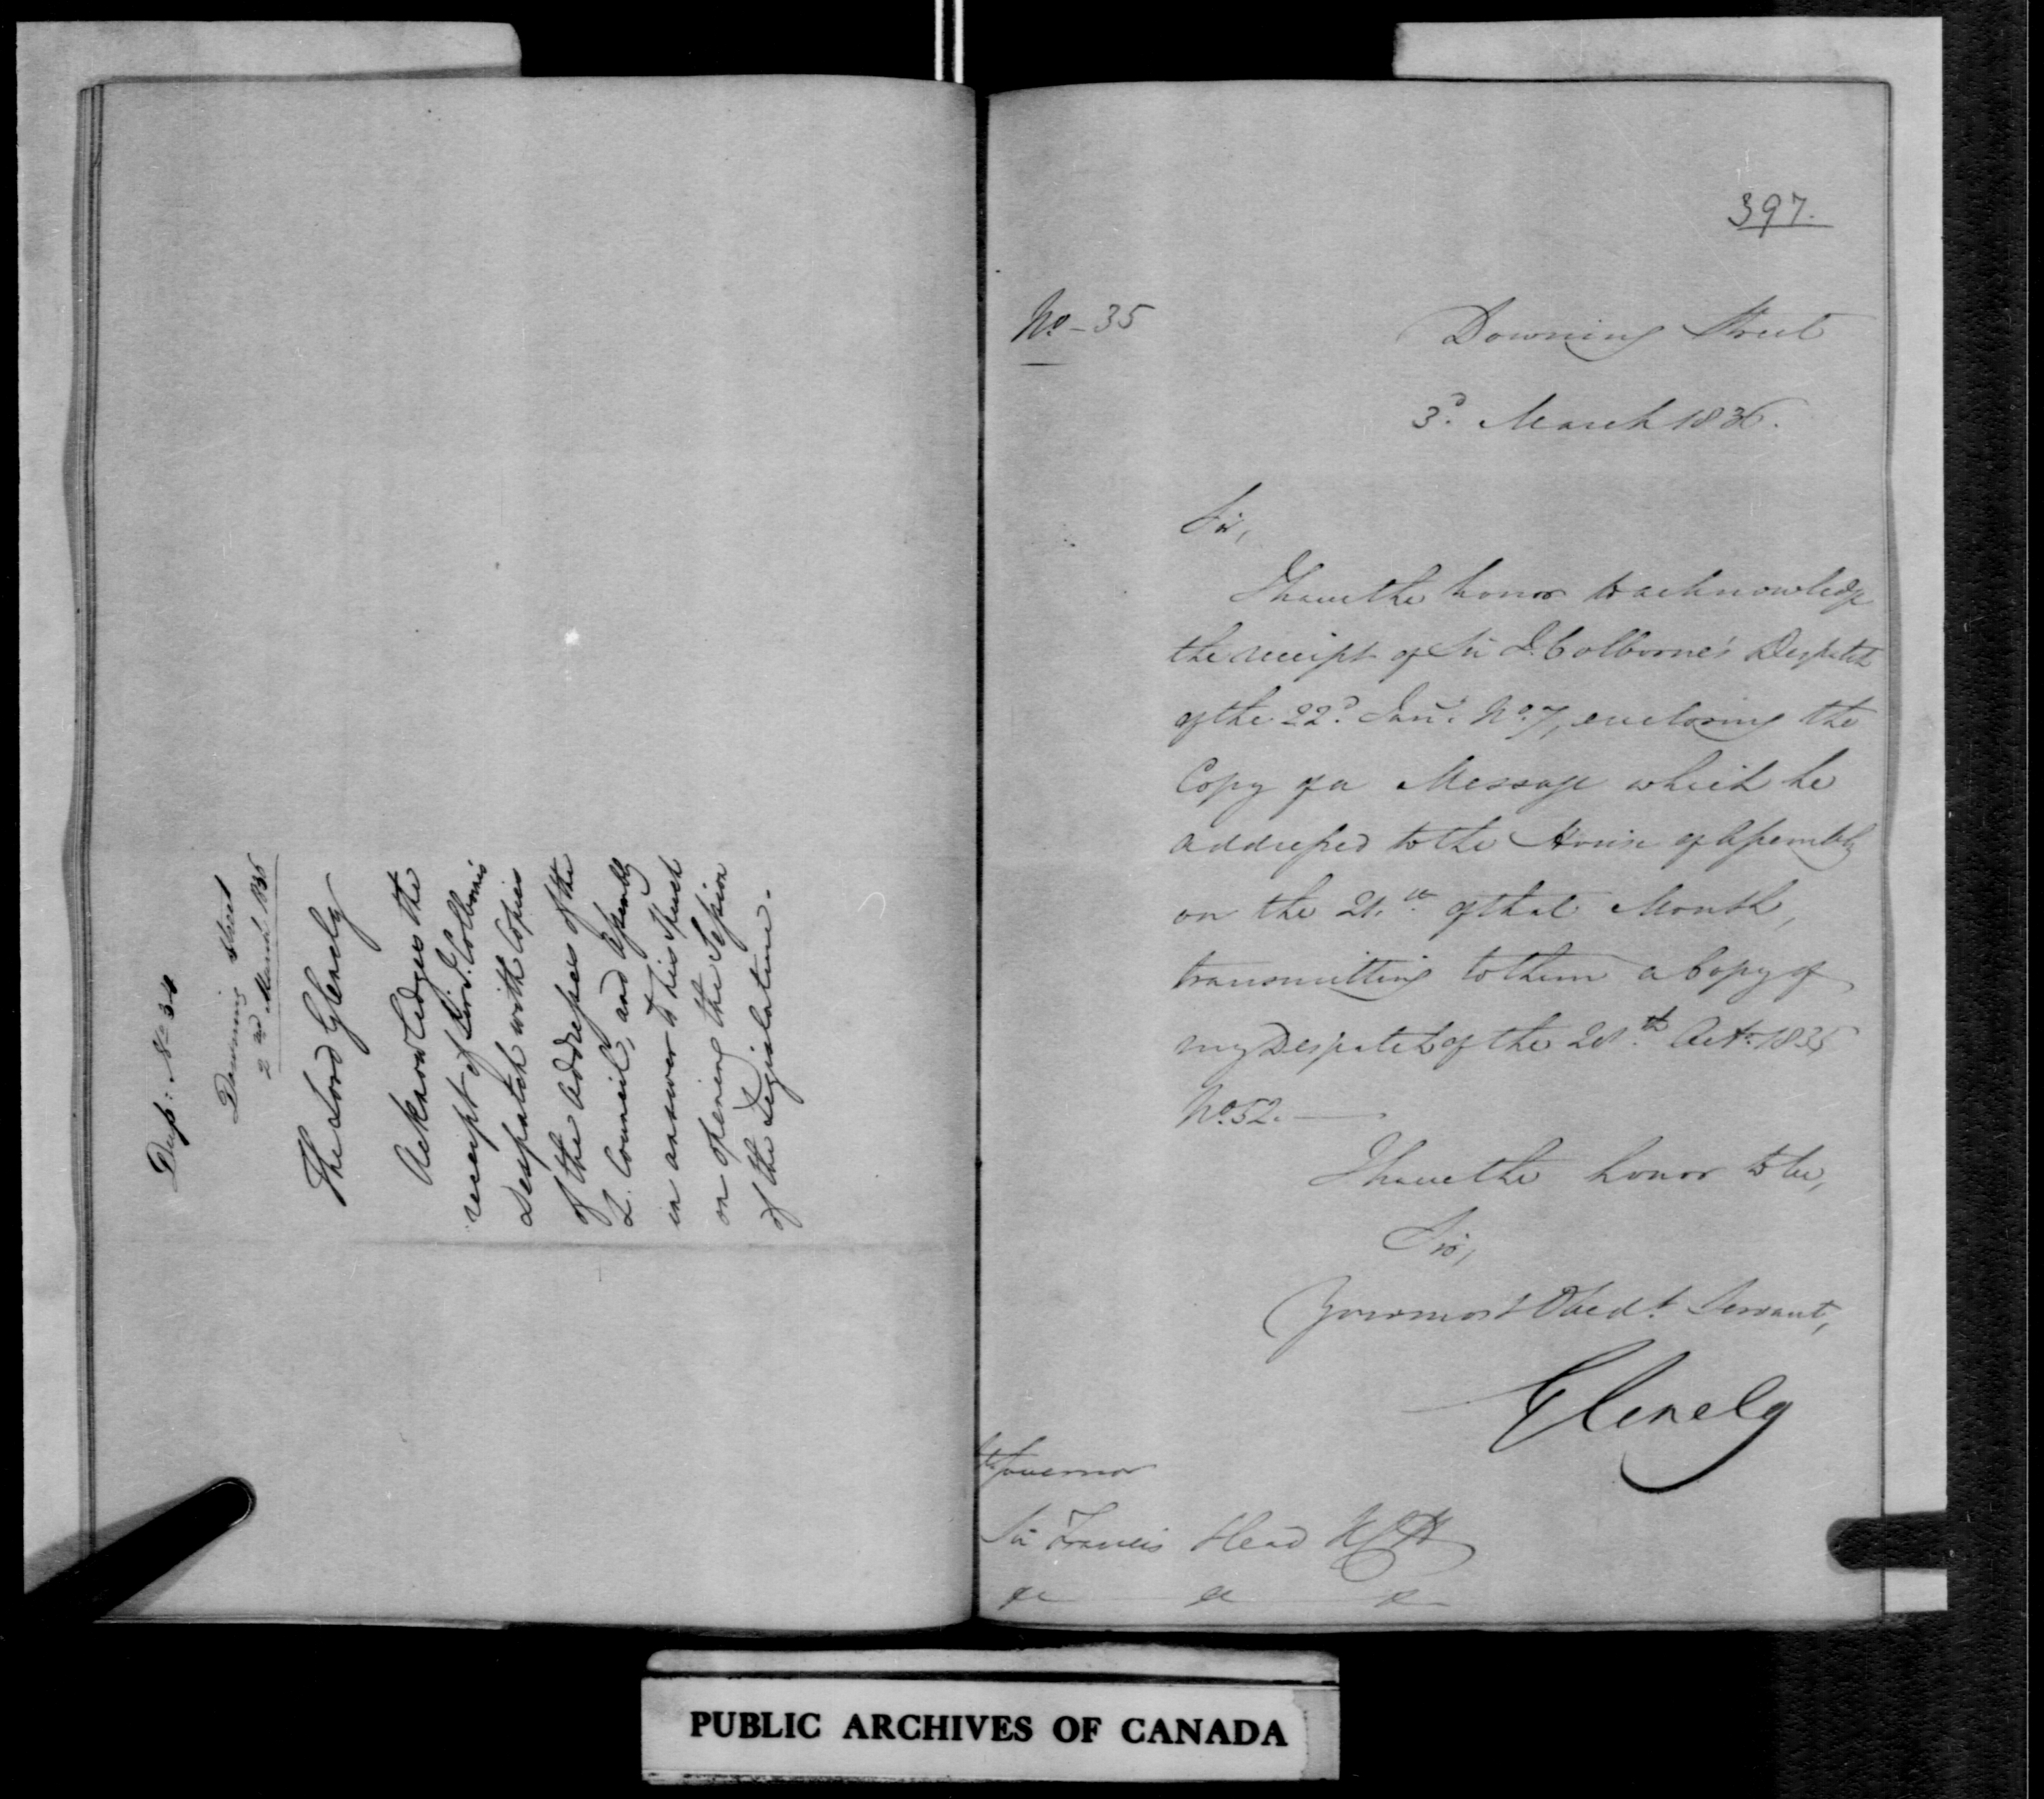 Desp: No 34
Downing Street
2nd March 1836
The Lord Glenelg
Acknowledges the
receipt of Sir J. Colborne's
Despatch with Copies
of the Addresses of the
L. Council, and Assembly
in answer to his Speech
on opening the Session
of the Legislature.
397.
No - 35
Downing Street
3d. March 1836.
Sir,
I have the honor to acknowledge
the receipt of Sir J. Colborne's Despatch
of the 22d. Jany. No. 7, enclosing the
Copy of a Message which he
addressed to the House of Assembly
on the of that Month,
transmitting to them a Copy of
my Despatch of the Octr. 1835
No. 52.
I have the honor to be,
Sir,
Your most Obedt. Servant,
Glenelg
Governor
Sir Francis Head KCH
&c &c &c
PUBLIC ARCHIVES OF CANADA